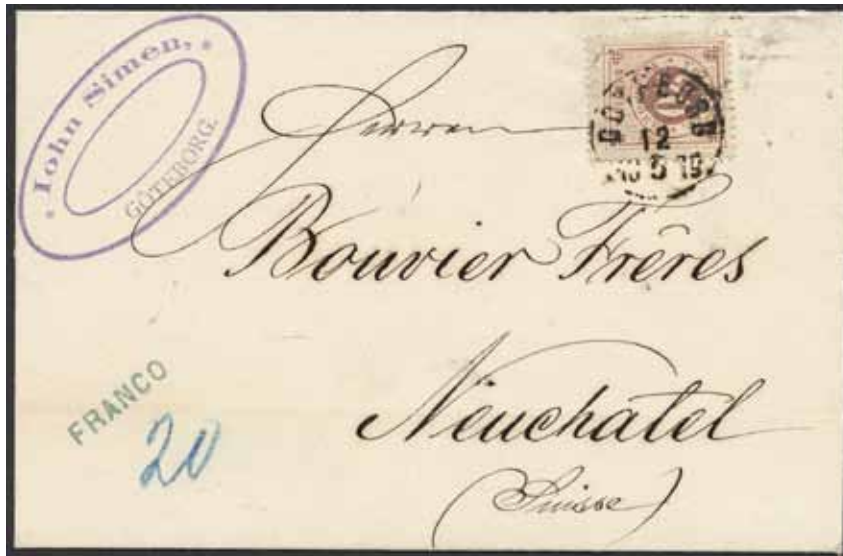 John Simen,
GÖTEBORG.
GÖTEBORG
12
5
Herren
Bouvier Frêres
Neuchatel
(Suisse)
FRANCO
20